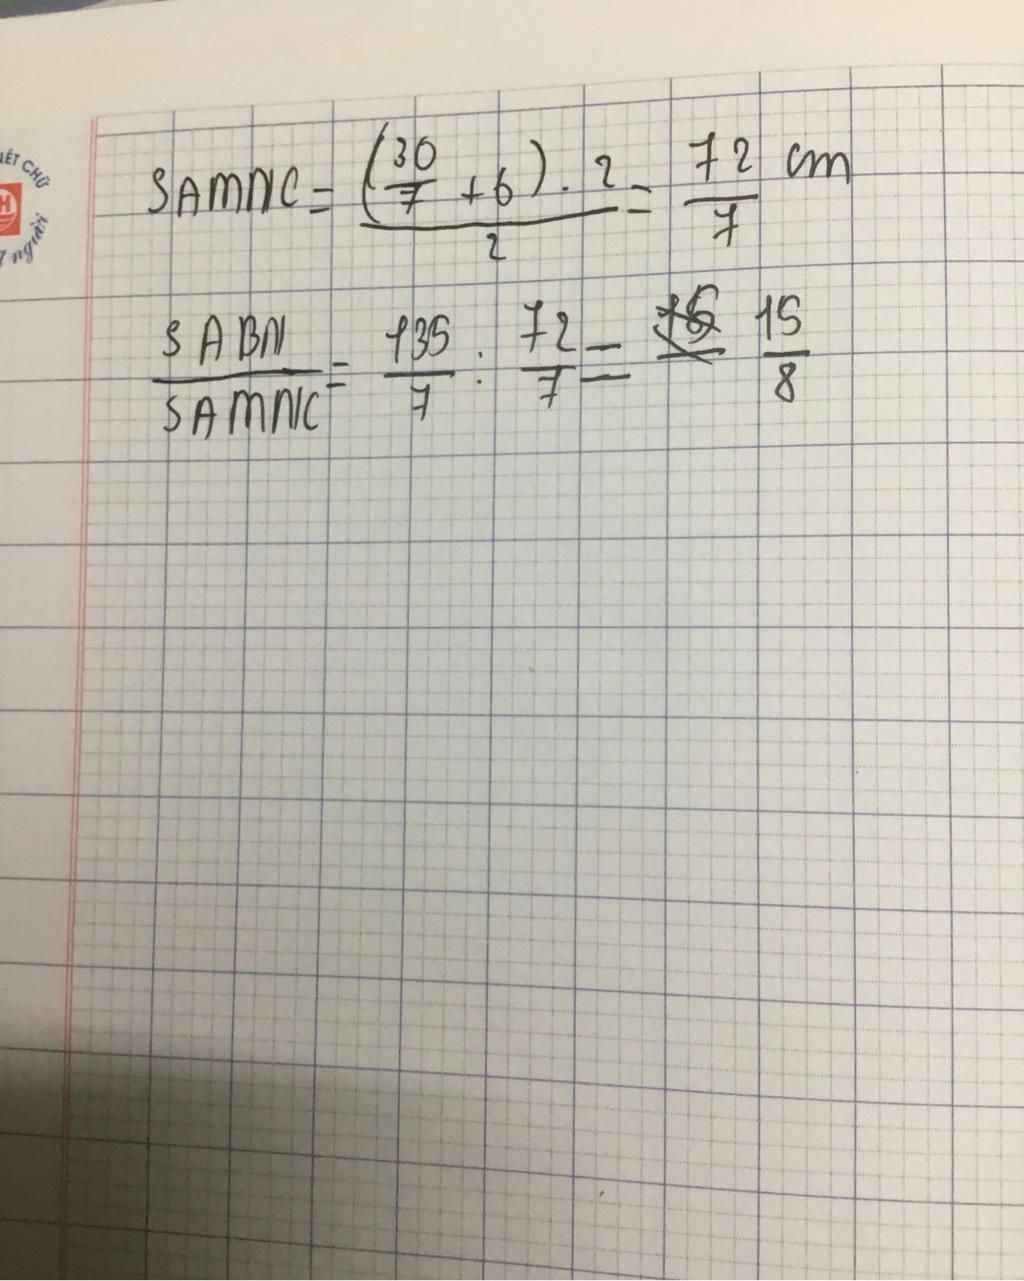 IẾT CHỮ
H
ngưài
SAMNC = (30/7 + 6) . 2 / 2 = 72/7 cm
SABN / SAMNC = 135/7 : 72/7 = 15/8